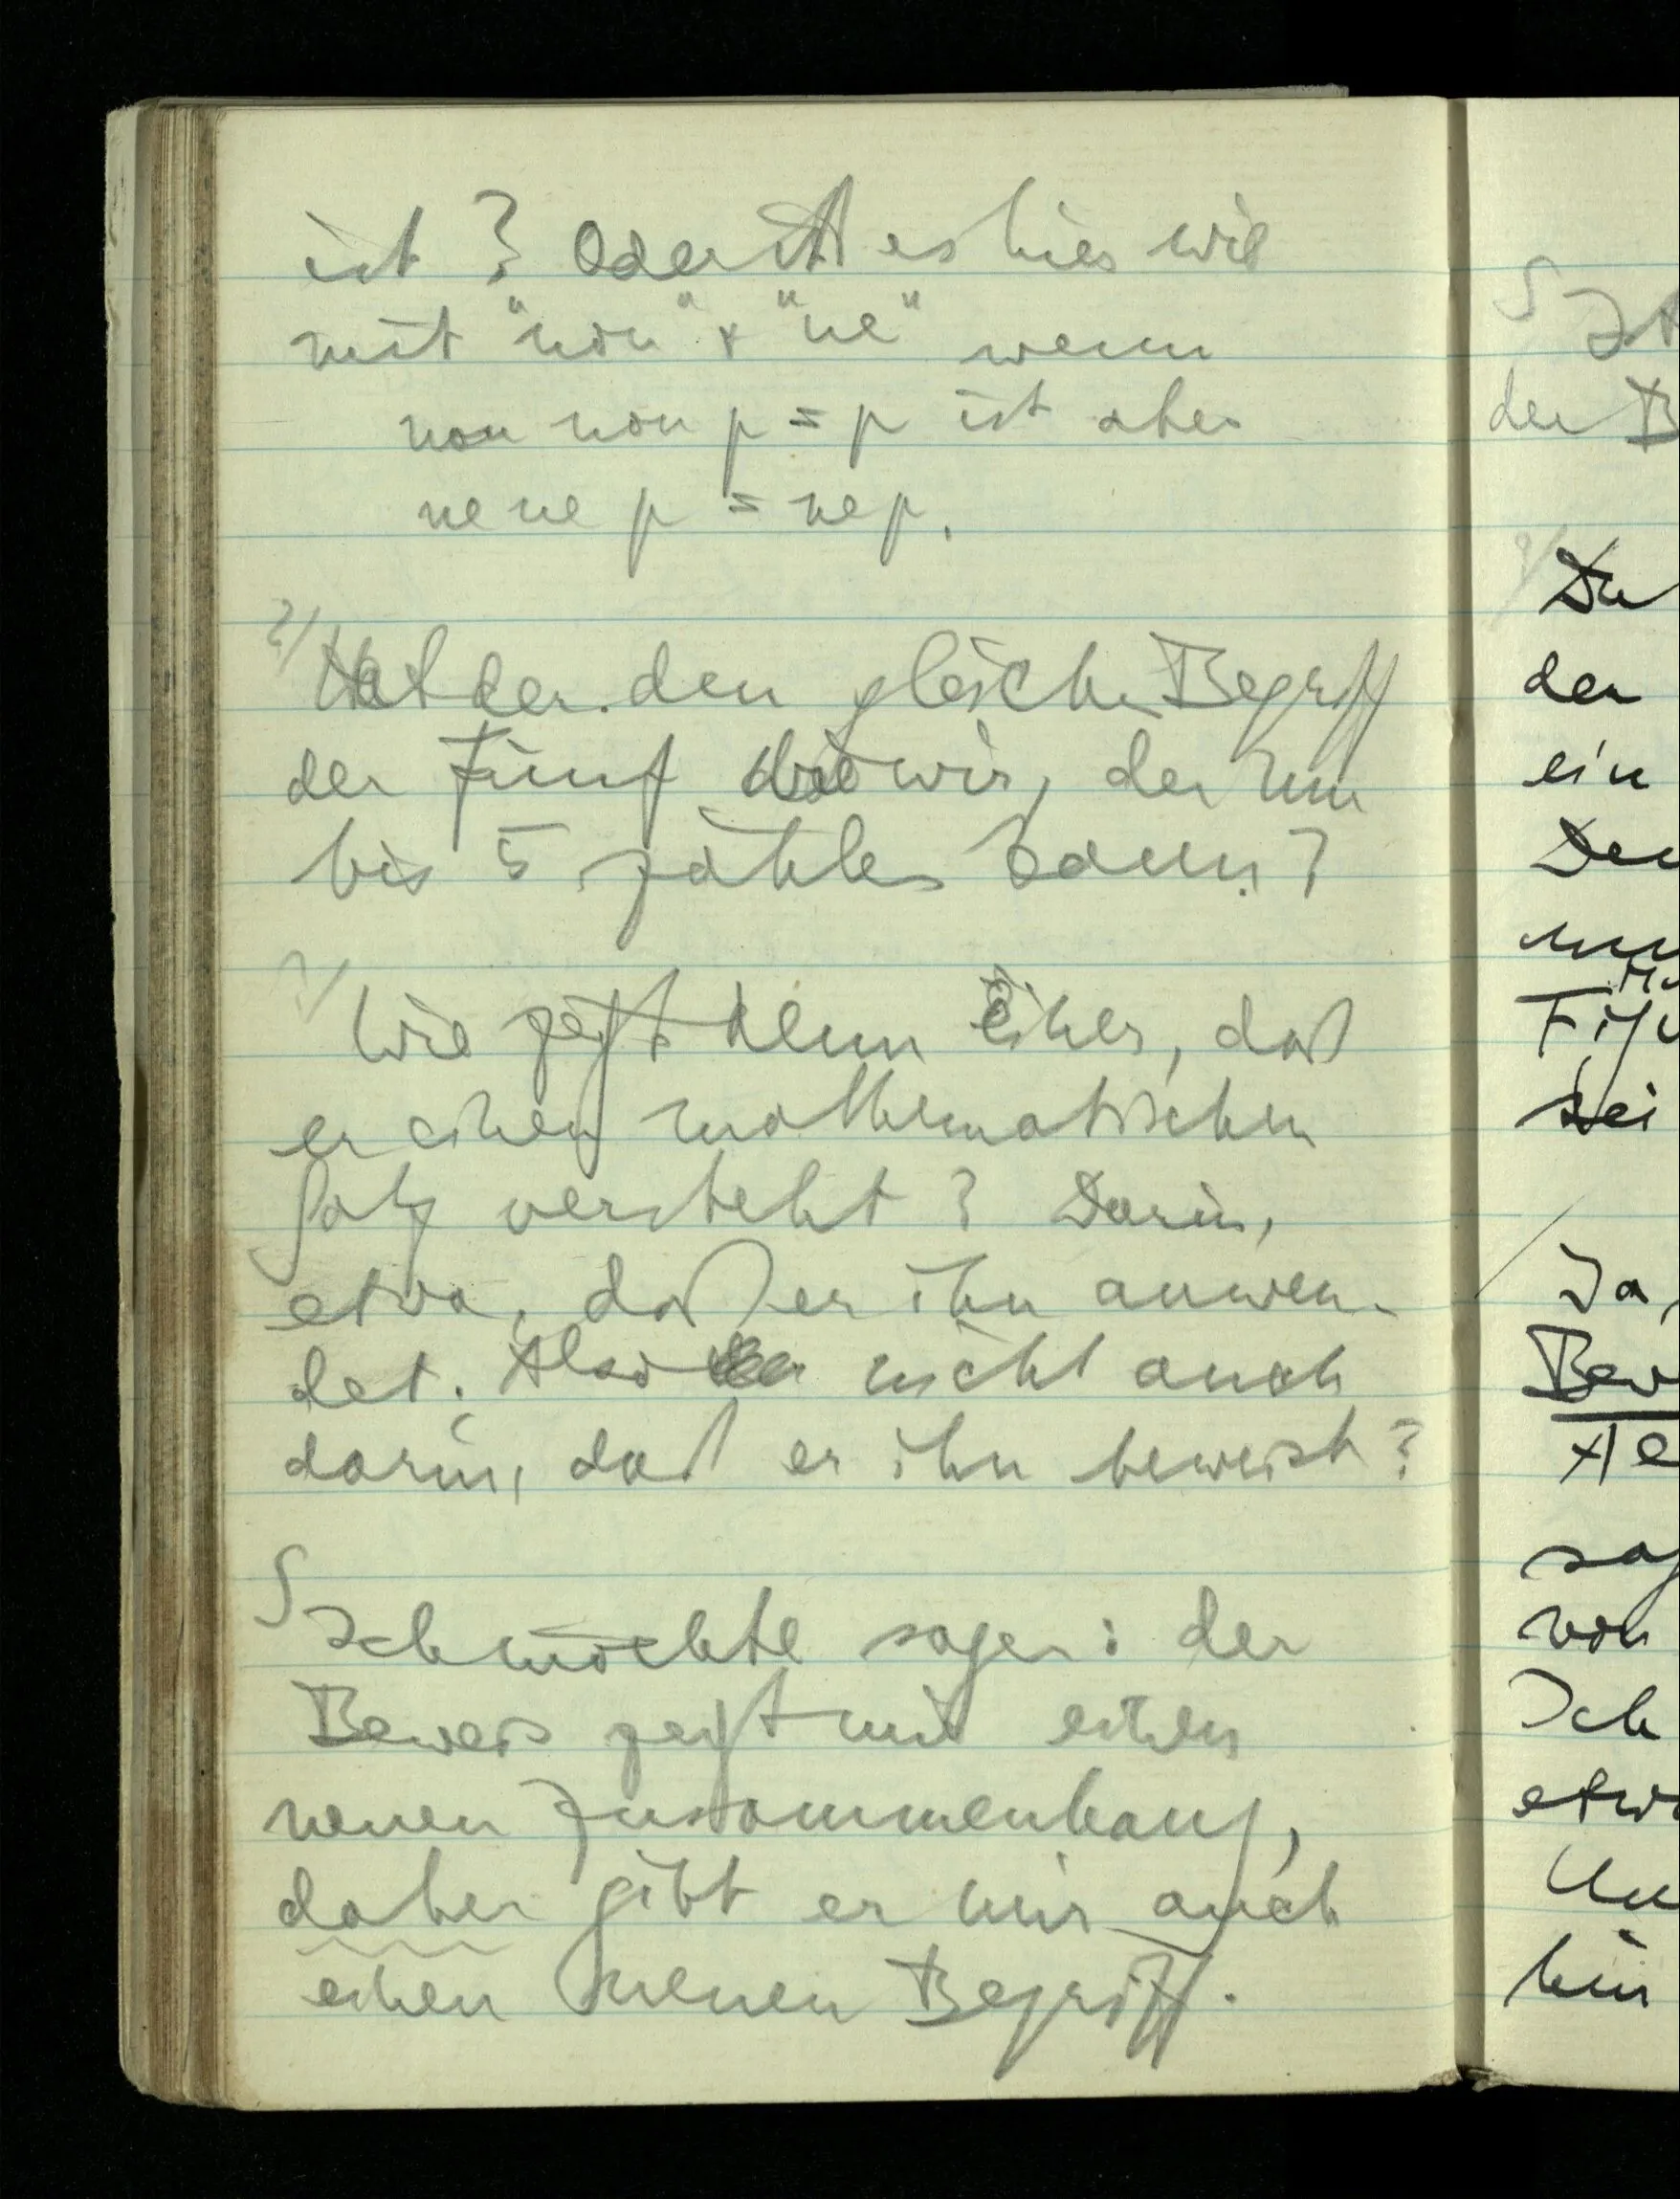 ist? Oder ist es hier wie
mit "non" & "ne" wenn
non non p = p ist aber
ne ne p = ne p.
?/ Hat der den gleichen Begriff
der Fünf wie wir, der nur
bis 5 zählen kann?
?/ Wie zeigt denn Einer, daß
er einen mathematischen
Satz versteht? Darin,
etwa, daß er ihn anwen-
det. Also nicht auch
darin, daß er ihn beweist?
S Ich möchte sagen: der
Beweis zeigt mir einen
neuen Zusammenhang,
daher gibt er mir auch
einen neuen Begriff.
S
den B
?/
der
ein
sei
/ Ja,
von
Ich